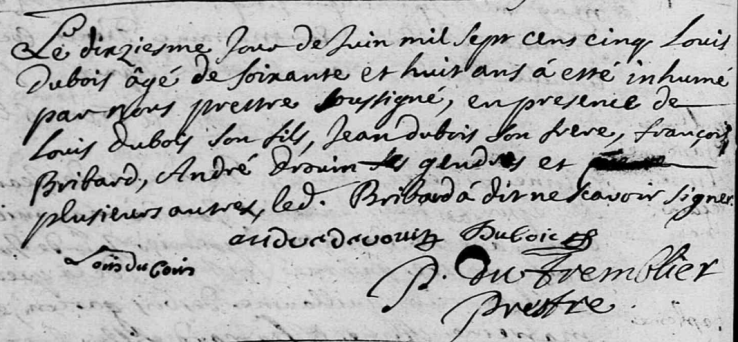 Le dixziesme Jour de Juin mil sept cens cinq Louis
Dubois âgé de soixante et huit ans â esté inhumé
par nous prettre soussigné, en presence de
Louis dubois son fils, Jean dubois son frere, françois
Bribard, André drouin ses gendres et
plusieurs autres, led. Bribard â dit ne scavoir signer.
andre derouin Duboic
Louis du bois
P. du Tremblier
Prestre